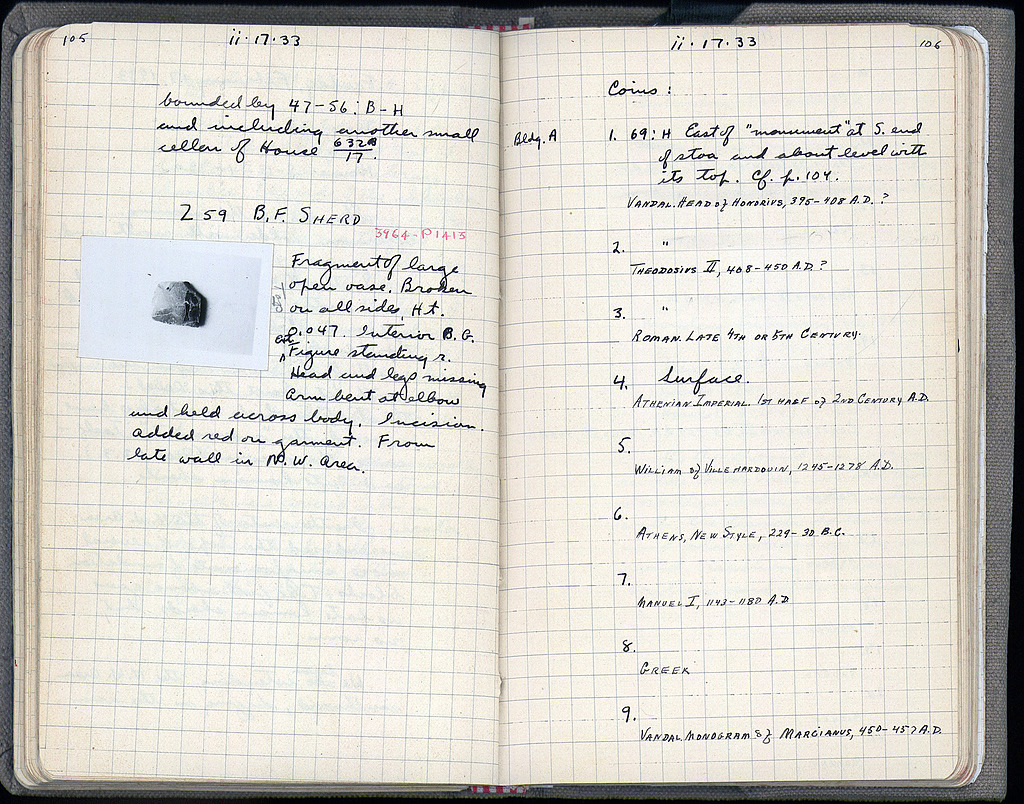 105
ii·17·33
bounded by 47-56: B-H
and including another small
cellar of House 632B/17.
Z 59 B.F. SHERD
3964-P1413
Fragment of large
open vase. Broken
on all sides. Ht.
0.047. Interior B.G.
Figure standing r.
Head and legs missing
arm bent at elbow
and held across body. Incision.
added red on garment. From
late wall in N.W. area.
ii·17·33
106
Coins:
Bldg. A
1. 69: H East of "monument" at S. end
of stoa and about level with
its top. Cf. p. 104.
VANDAL. HEAD of HONORIUS, 395-408 A.D.?
2. "
THEODOSIUS II, 408-450 A.D.?
3. "
ROMAN. LATE 4TH OR 5TH CENTURY.
4. Surface.
ATHENIAN IMPERIAL. 1ST HALF of 2ND CENTURY A.D.
5.
WILLIAM of VILLEHARDOUIN, 1245-1278 A.D.
6.
ATHENS, NEW STYLE, 229-30 B.C.
7.
MANUEL I, 1143-1180 A.D
8.
GREEK
9.
VANDAL. MONOGRAM of MARCIANUS, 450-457 A.D.